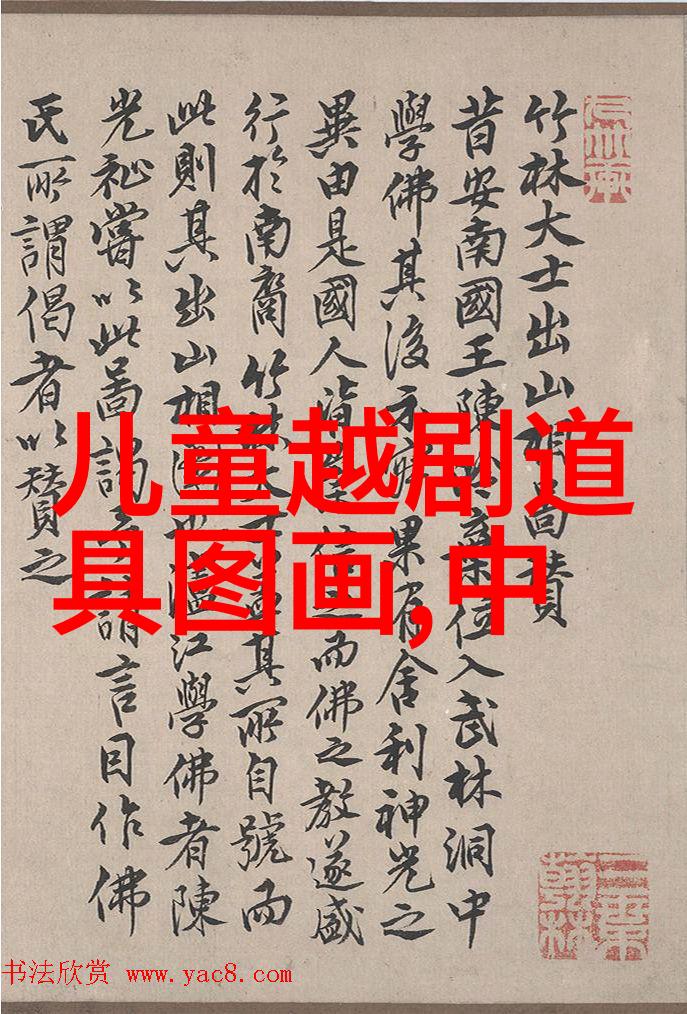 儿童越剧道
具图画,中
竹林大士出山相啚賛
昔安南國王陳棄位入武林洞中
學佛其後示寂果有舍利神光之
異由是國人皆信之而佛之教遂盛
行於南裔竹林大士其所自號而
此則其出山相江學佛者陳
光祉嘗以此啚謁請言目作佛
氏所謂偈者以賛之
书法欣赏 www.yac8.com